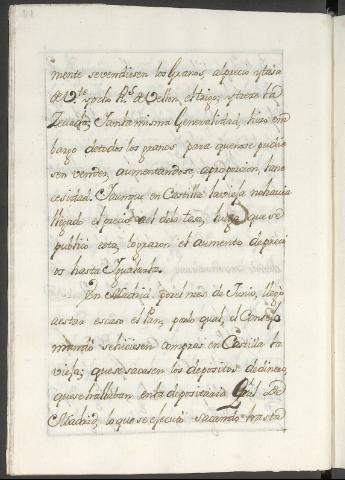 mente sevendiesen los Granos, alprecio ytasa
de V.te yocho R.s de Vellon eltrigo, ytreze la
Zevada; Yconla misma Generalidad, hizo em
bargo detodos los granos para quenose pudie
sen vender, aumentandose, aproporcion, la ne
cesidad. Yaunque en Castilla lavieja nohavia
llegado el precio al dela tasa, luego que se
publicó esta, lograron el aumento deprecí
os hasta Igualarla.
En Madrid, porel mes de Junio, llegó
aestar escaso el Pan, porlo qual, el Consejo
mandó sehiciesen compras en Castilla la
vieja; quesesacasen los depositos dedinero,
quese hallaban enla depositaria Gral. de
Madrid, loquese ejecutó sacando hasta